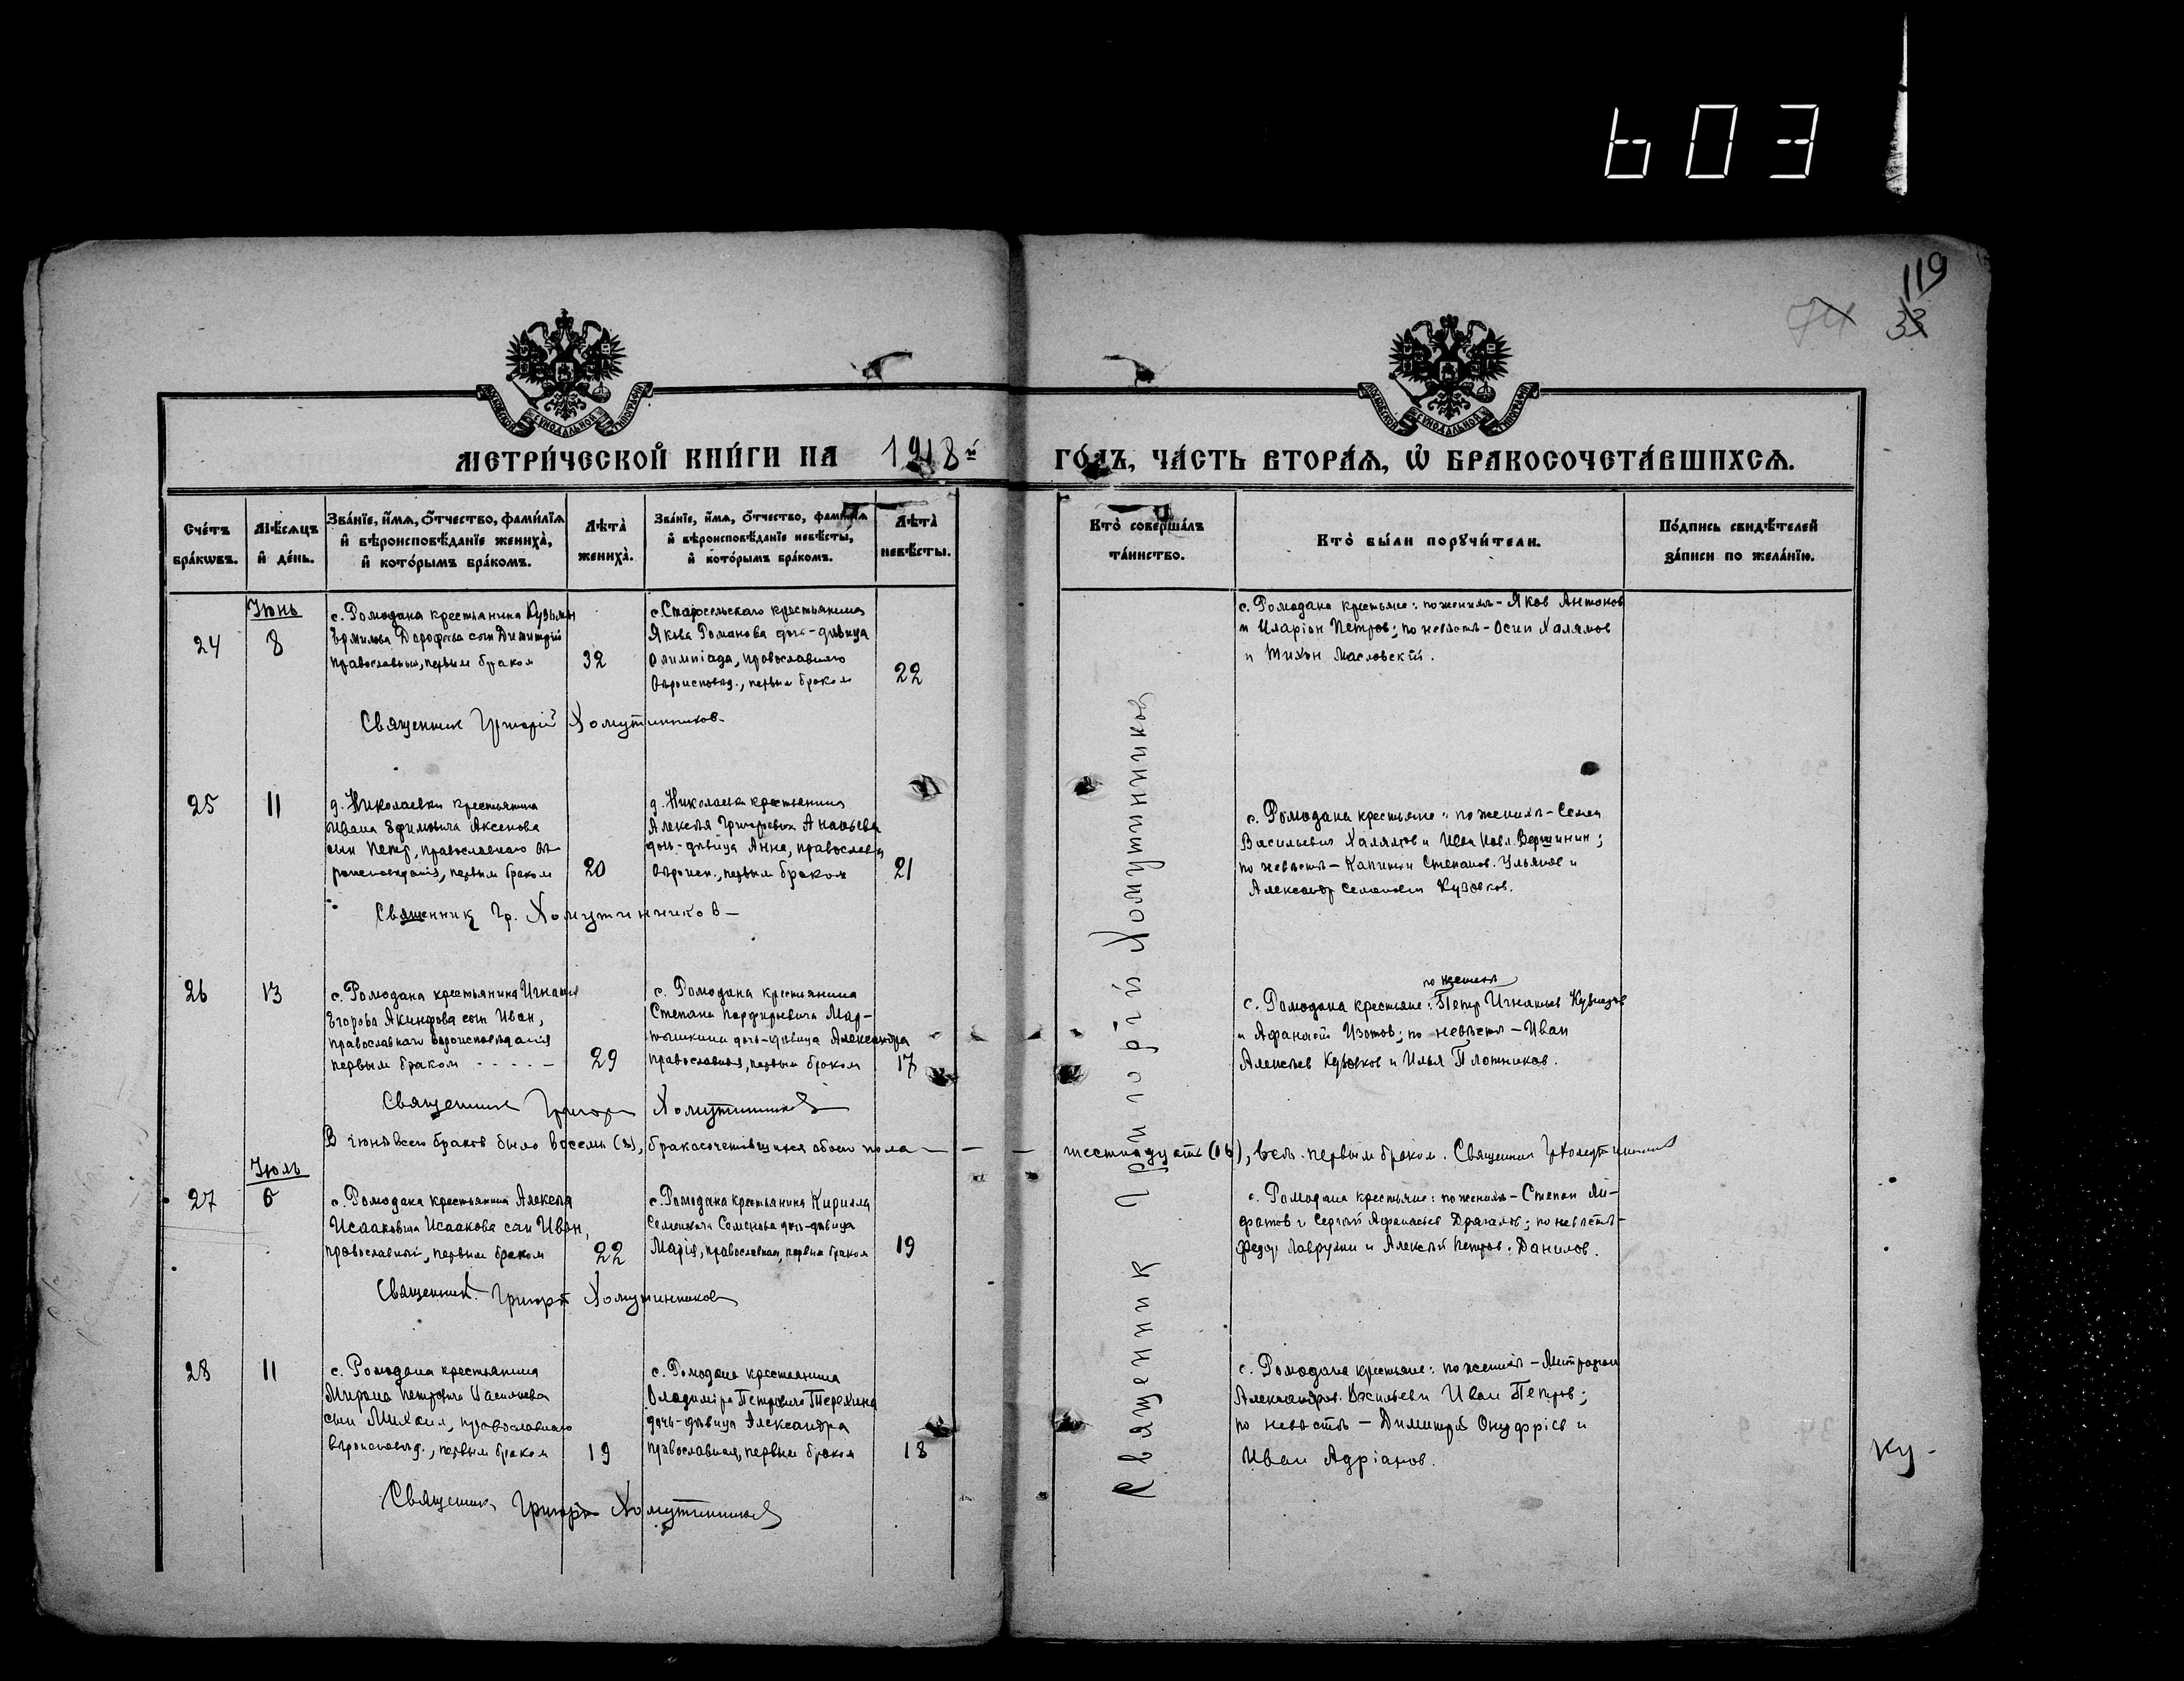 603
119
74 33
МОСКОВСКОЙ СѴНОДАЛЬНОЙ ТИПОГРАФІИ
МОСКОВСКОЙ СѴНОДАЛЬНОЙ ТИПОГРАФІИ
МЕТРИ́ЧЕСКОЙ КНИ́ГИ НА 1918й ГО́ДЪ, ЧА́СТЬ ВТОРА́Я, Ѡ БРАКОСОЧЕТА́ВШИХСѦ.
Сче́тъ бра́кѡвъ.
Мѣ́сѧцъ и҆ де́нь.
Зва́нїе, и҆́мѧ, ѻ҆́тчество, фами́лїѧ
и҆ вѣроисповѣ́данїе жениха̀,
и҆ кото́рымъ бра́комъ.
Лѣта̀ жениха̀.
Зва́нїе, и҆́мѧ, ѻ҆́тчество, фами́лїѧ
и҆ вѣроисповѣ́данїе невѣ́сты,
и҆ кото́рымъ бра́комъ.
Лѣта̀ невѣ́сты.
Кто̀ соверша́лъ та́инство.
Кто̀ бы́ли порꙋчи́тели.
По́дпись свидѣ́телей за́писи по жела́нїю.
Священник Григорій Хомутинников
Іюнь
24
8
с. Ромодана крестьянина Кузьмы
Ермилова Дорофеева сын Димитрій
православный, первым браком
32
с. Старосельскаго крестьянина
Якова Романова дочь-дѣвица
Олимпіада, православнаго
вѣроисповѣд., первым браком
22
с. Ромодана крестьяне: по женихѣ - Яков Антонов
и Иларіон Петров; по невѣстѣ - Осип Халямов
и Тихон Масловскій.
Священник Григорій Хомутинников
25
11
д. Николаевки крестьянина
Ивана Ефимовича Аксенова
сын Петр, православнаго вѣ-
роисповѣданія, первым браком
20
д. Николаевки крестьянина
Алексѣя Григорьевича Ананьева
дочь-дѣвица Анна, православн
вѣроисп., первым браком
21
с. Ромодана крестьяне: по женихѣ - Семен
Васильевич Халямов и Иван Павл. Вершинин;
по невѣстѣ - Капитон Степанов. Ульянов и
Александр Семенович Кузовков.
Священник Гр. Хомутинников -
26
13
с. Ромодана крестьянина Игнатія
Егорова Акинфова сын Иван,
православнаго вѣроисповѣданія
первым браком - - - - -
29
с. Ромодана крестьянина
Степана Порфирьевича Мар-
тышкина дочь-дѣвица Александра
православная, первым браком
17
по женихѣ
с. Ромодана крестьяне: Петр Игнатьев Кузнецов
и Афанасій Изотов; по невѣстѣ - Иван
Алексѣев Кузовков и Илья Плотников.
Священник Григорій Хомутинников
В іюнѣ всего браков было восемь (8), бракосочетавшихся обоего пола — — — шестнадцать (16), всѣ первым браком. Священник Гр Хомутинников
Іюль
27
6
с. Ромодана крестьянина Алексѣя
Исааковича Исаакова сын Иван,
православный, первым браком
22
с. Ромодана крестьянина Кирилла
Семеновича Семенова дочь-дѣвица
Марія, православная, первым браком
19
с. Ромодана крестьяне: по женихѣ - Степан
и Сергѣй Афанасьев; по невѣстѣ -
Федор Лаврухин и Алексѣй Петров. Данилов.
Священник Григорій Хомутинников
28
11
с. Ромодана крестьянина
Мирона Петровича Васильева
сын Михаил, православнаго
вѣроисповѣд., первым браком
19
с. Ромодана крестьянина
Владиміра Петровича Терехина
дочь-дѣвица Александра
православная, первым браком
18
с. Ромодана крестьяне: по женихѣ - Митрофан
Александров. Васильев и Иван Петров;
по невѣстѣ - Димитрій Онуфріев и
Иван Адріанов.
Священник Григорій Хомутинников
Ку -